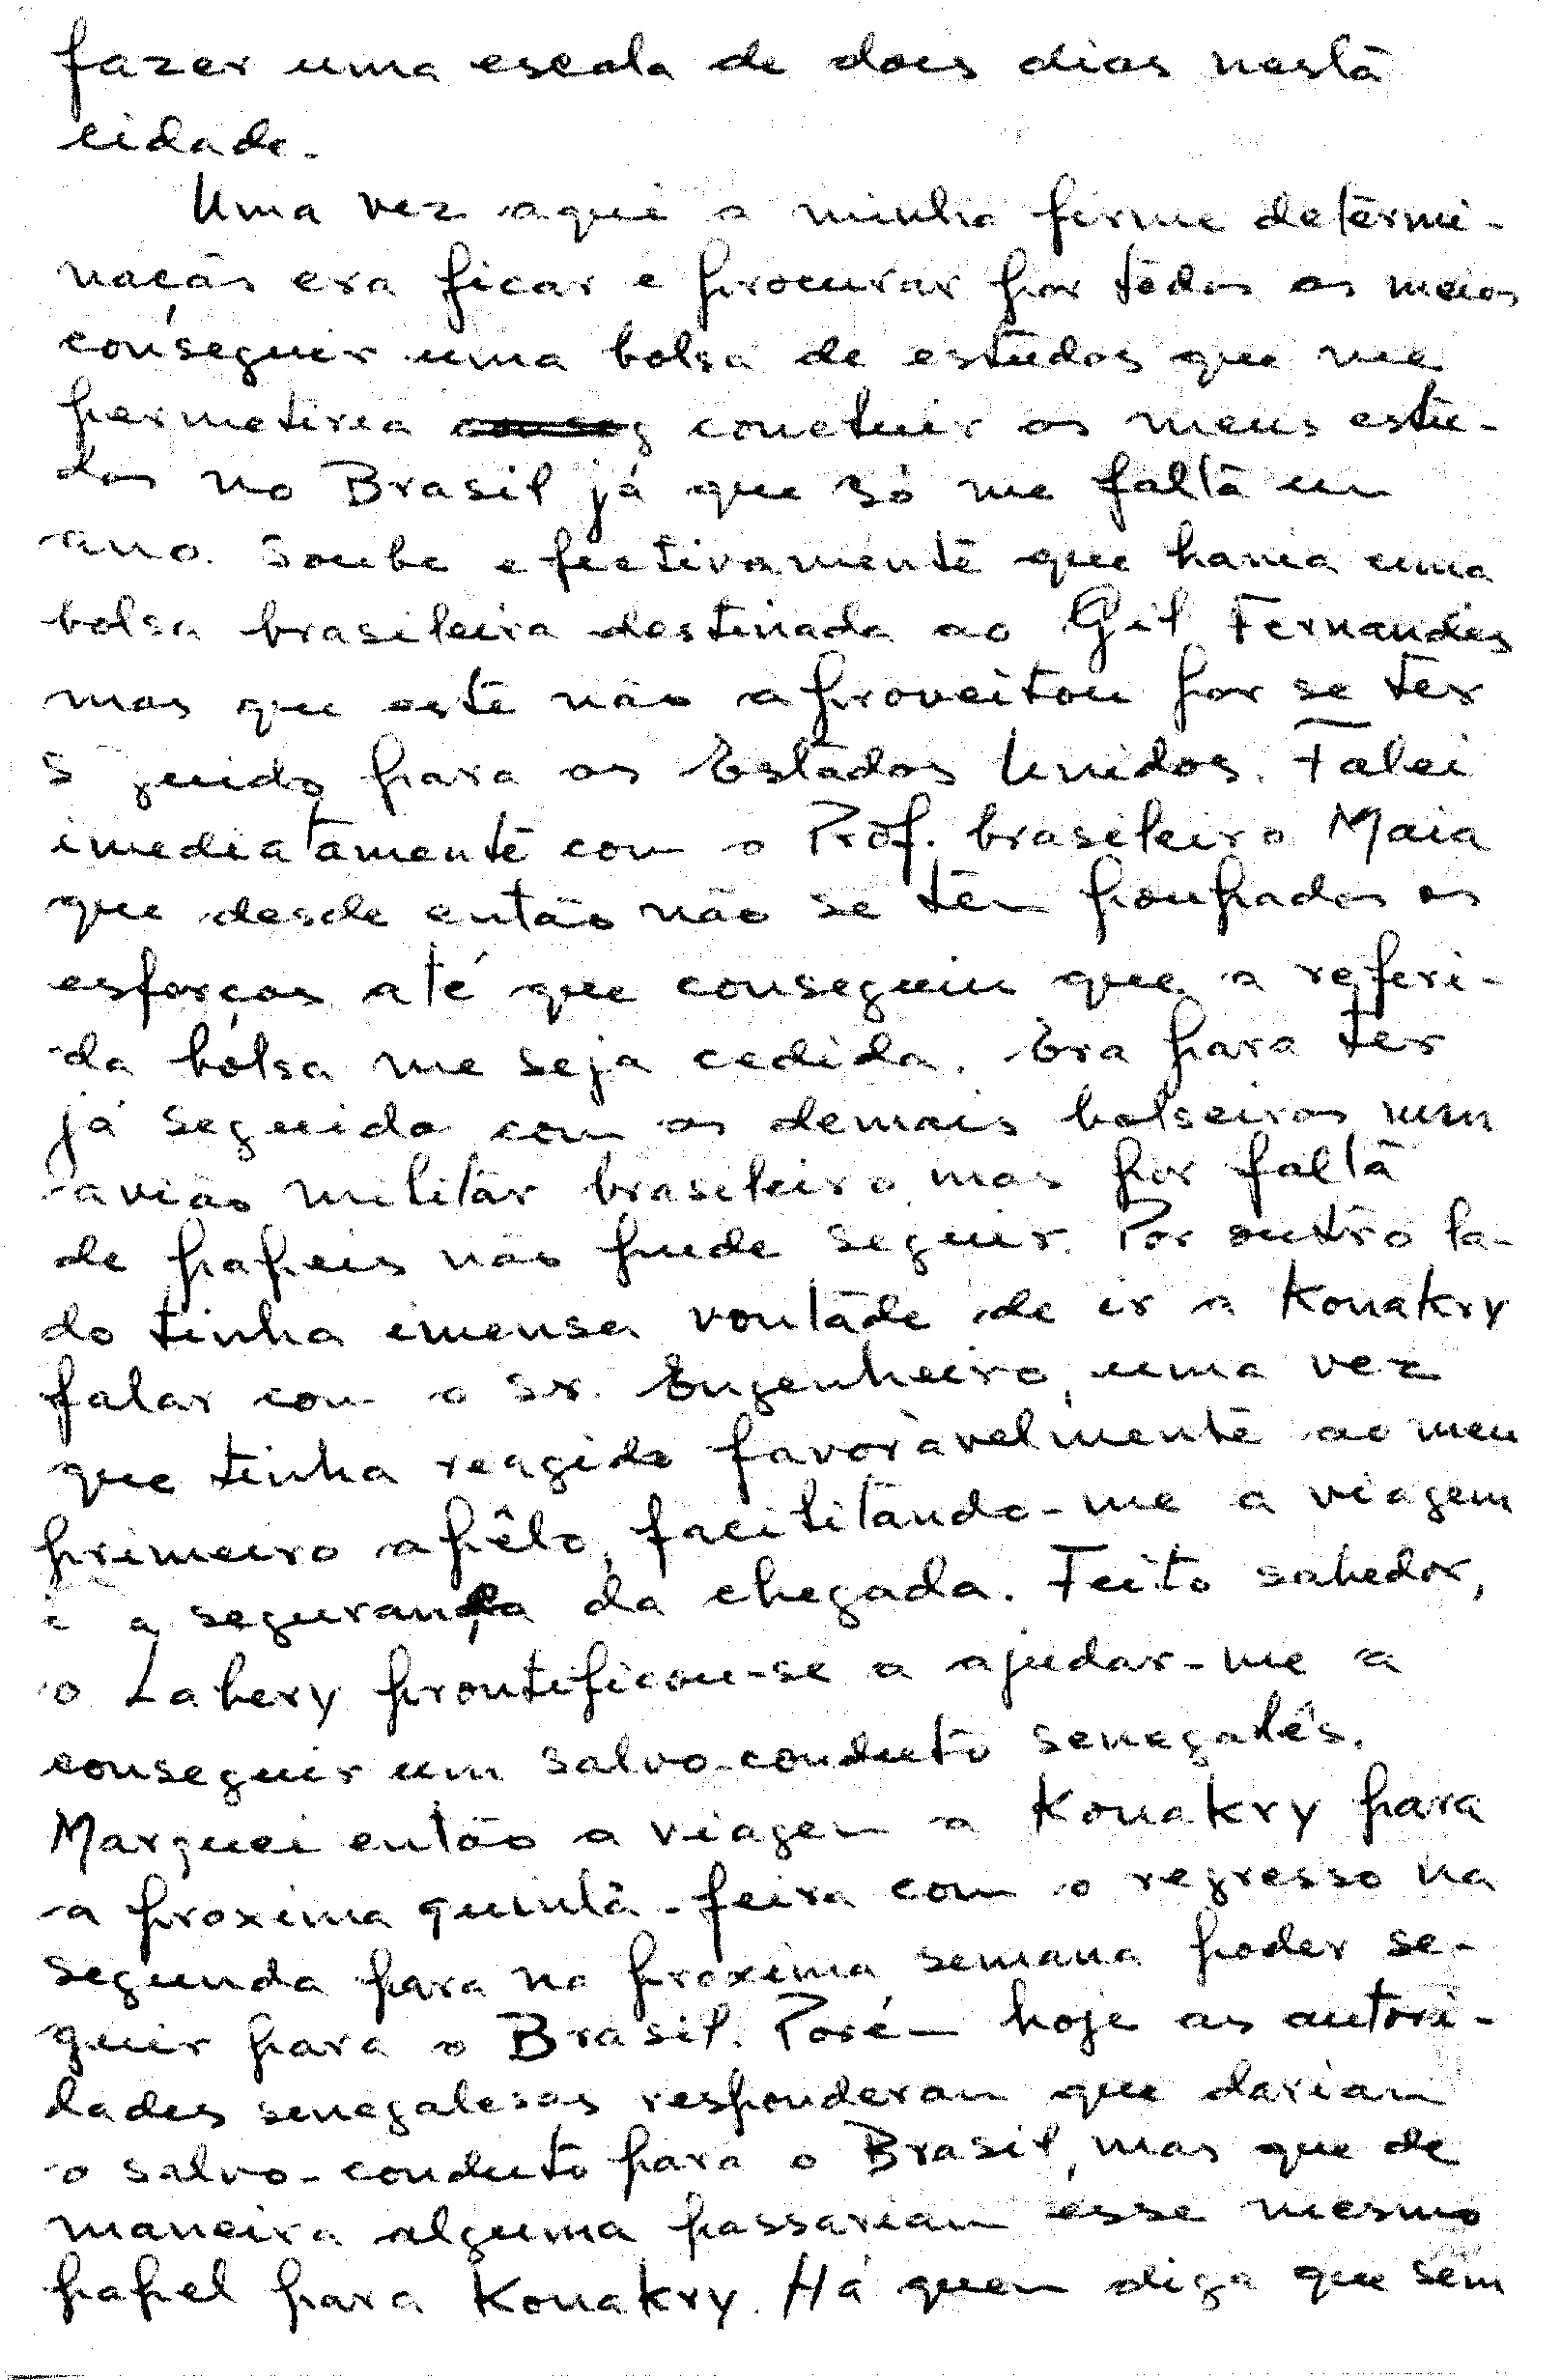 fazer uma escala de dois dias nesta
cidade.
Uma vez aqui a minha firme determi-
nação era ficar e procurar por todos os meios
conseguir uma bolsa de estudos que me
permetiria concluir os meus estu-
dos no Brasil já que só me falta um
ano. Soube efectivamente que havia uma
bolsa brasileira destinada ao Gil Fernandes
mas que este não aproveitou por se ter
seguido para os Estados Unidos. Falei
imediatamente com o Prof. brasileiro Maia
que desde então não se tem poupados os
esforços até que conseguiu que a referi-
da bolsa me seja cedida. Era para ter
já seguido com os demais bolseiros num
avião militar brasileiro, mas por falta
de papeis não pude seguir. Por outro la-
do tinha imensa vontade de ir a Konakry
falar com o Sr. Engenheiro, uma vez
que tinha reagido favoràvelmente ao meu
primeiro apêlo, facilitando-me a viagem
e a segurança da chegada. Feito sabedor,
o Labery prontificou-se a ajudar-me a
conseguir um salvo-conduto senegalês.
Marquei então a viagem a Konakry para
a proxima quinta-feira com o regresso na
segunda para na proxima semana poder se-
guir para o Brasil. Porém hoje as autori-
dades senegalesas responderam que dariam
o salvo-conduto para o Brasil, mas que de
maneira alguma passariam esse mesmo
papel para Konakry. Há quem diga que sem